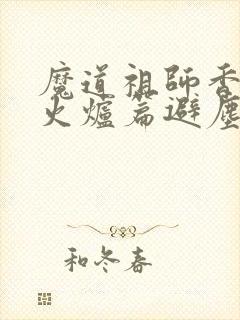 魔道祖師香
火爐篇避塵
和冬春